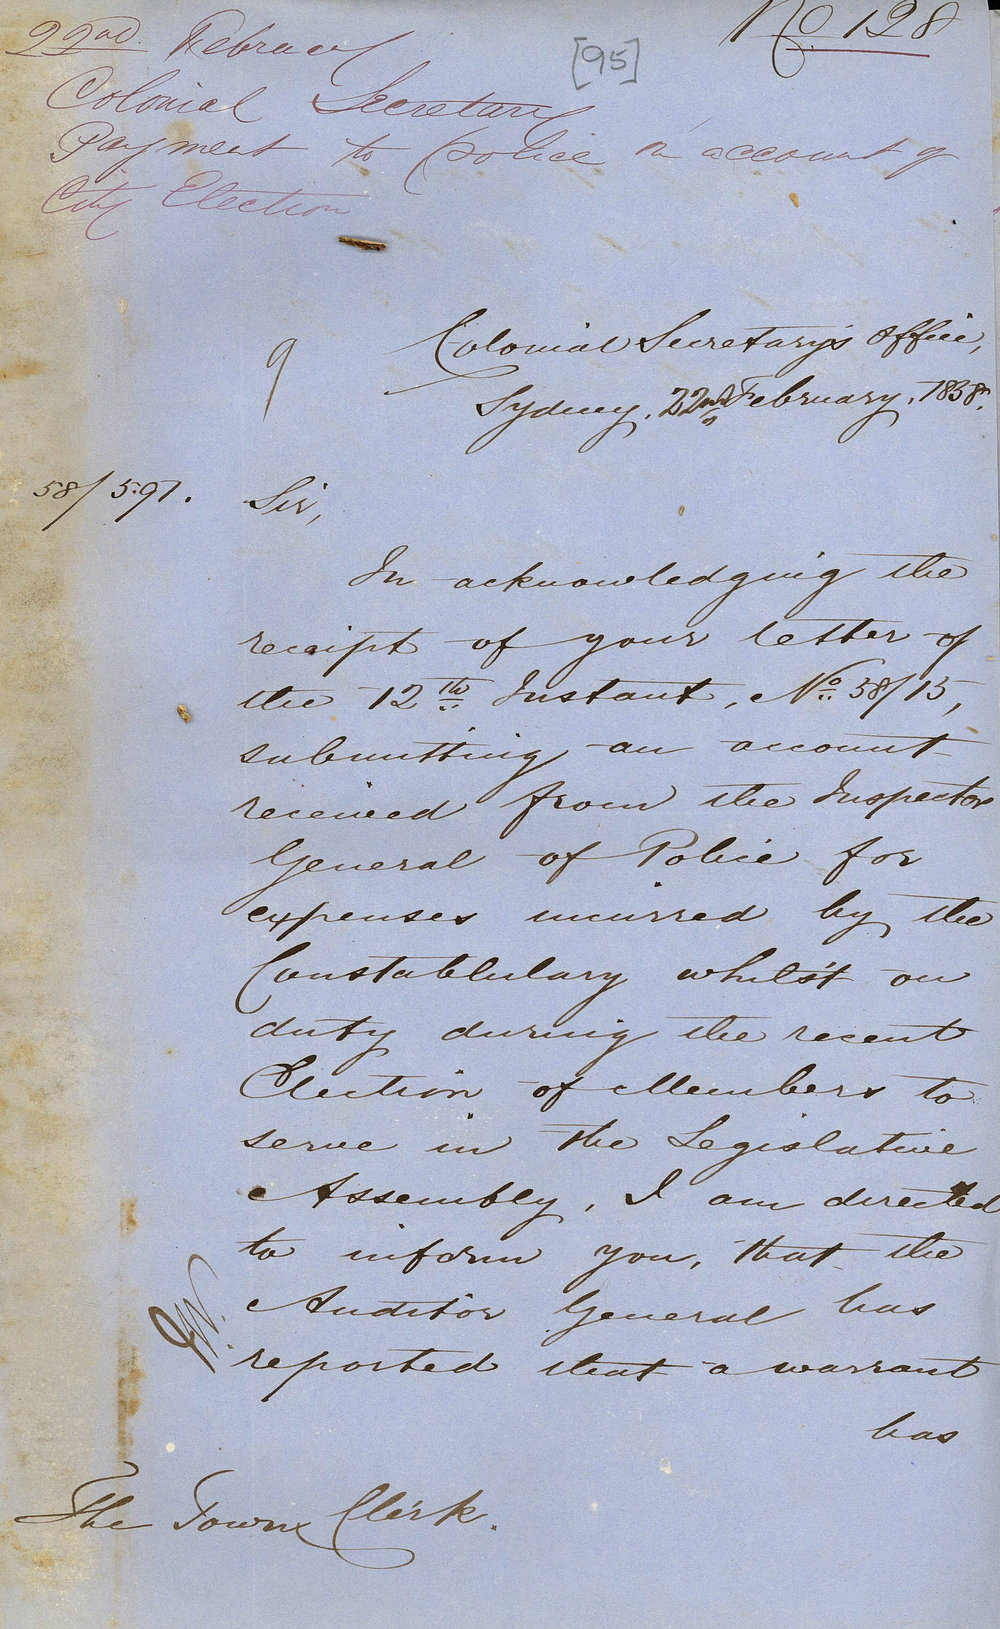 No 128
22nd. February
[95]
Colonial Secretary
Payment to police on account of
City Election
Colonial Secretary's Office,
Sydney, 22nd February, 1858.
9
58/597.
Sir,
In acknowledging the
receipt of your letter of
the 12th Instant, No. 58/15,
submitting an account
received from the Inspector
General of Police for
expenses incurred by the
Constablulary whilst on
duty during the recent
Election of Members to
serve in the Legislative
Assembly, I am directed
to inform you, that the
Auditor General has
reported that a warrant
has
The Town Clerk.